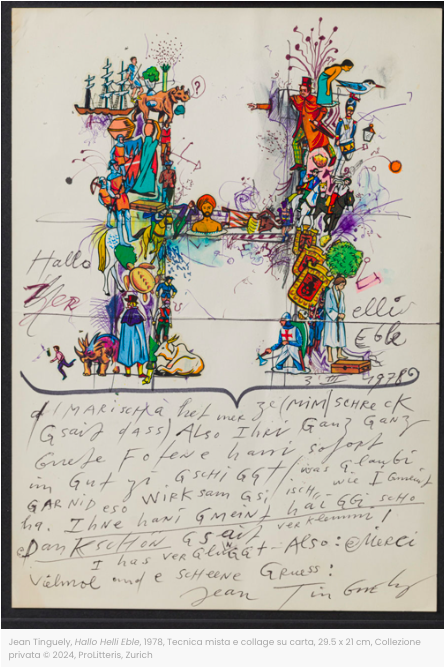 Hallo
Herr
elli
Eble
3. III 1978
d'MARISCHKA het mer ze (MIM) SCHReCK
(Gsait dass) Also Ihri Ganz Ganz
Guete Fotene hani sofort
im Gut zi GSCHIGGT / was Glaubi
GARNID eso WIRKSAM GSI isch, wie I Gmeint
ha. Ihne hani GMEINT hai GGI SCHO
verklemmi!
e DanKSCHÖN GSait
I has verGlüGGt - Also: e Merci
vielmol und e scheene Gruess:
Jean Tinguely
Jean Tinguely, Hallo Helli Eble, 1978, Tecnica mista e collage su carta, 29.5 x 21 cm, Collezione
privata © 2024, ProLitteris, Zurich